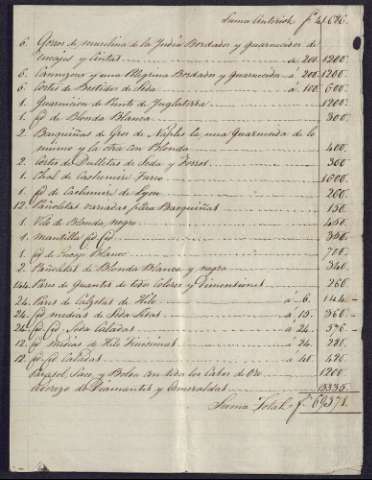 Suma Anterior f. 41,696.
6. Gorros de muselina de la India Bordados y guarnecidos de
Encajes y Cintas a 200 1200.
6. Canezous y una Pelegrina Bordados y guarnecida á 200 1200.
6. Cortes de Bestidos de Seda á 100 600.
1. Guarnicion de Punto de Inglaterra 1200.
1. id de Blonda Blanca 300.
2. Basquiñas de Gros de Naples la una Guarnecida de lo
mismo y la otra con Blonda 400.
2. Cortes de Dulletas de Seda y Forros 300
1. Chal de Cashemire Turco 1000.
1. id de Cachemire de Lyon 200.
12. Pañoletas variadas para Basquiñas 150.
1. Velo de Blonda negro 450.
1. Mantilla id id 350.
1. id de Encaje Blanco 700.
2. Pañoletas de Blonda Blanca y negra 340.
144. Pares de Guantes de todos Colores y Dimensiones 260
24. Pares de Calzetas de Hilo á 6. 144.
24. id medias de Seda Lisas á 15. 360
24. id id Seda Caladas á 24. 576
12. id Medias de Hilo Finisimas á 24. 280.
12. id id Caladas á 40. 480.
Parasol, Saco, y Bolsa con todos los Cabos de Oro 1200
Aderezo de Diamantes y Esmeraldas
Suma Total f. 69371.